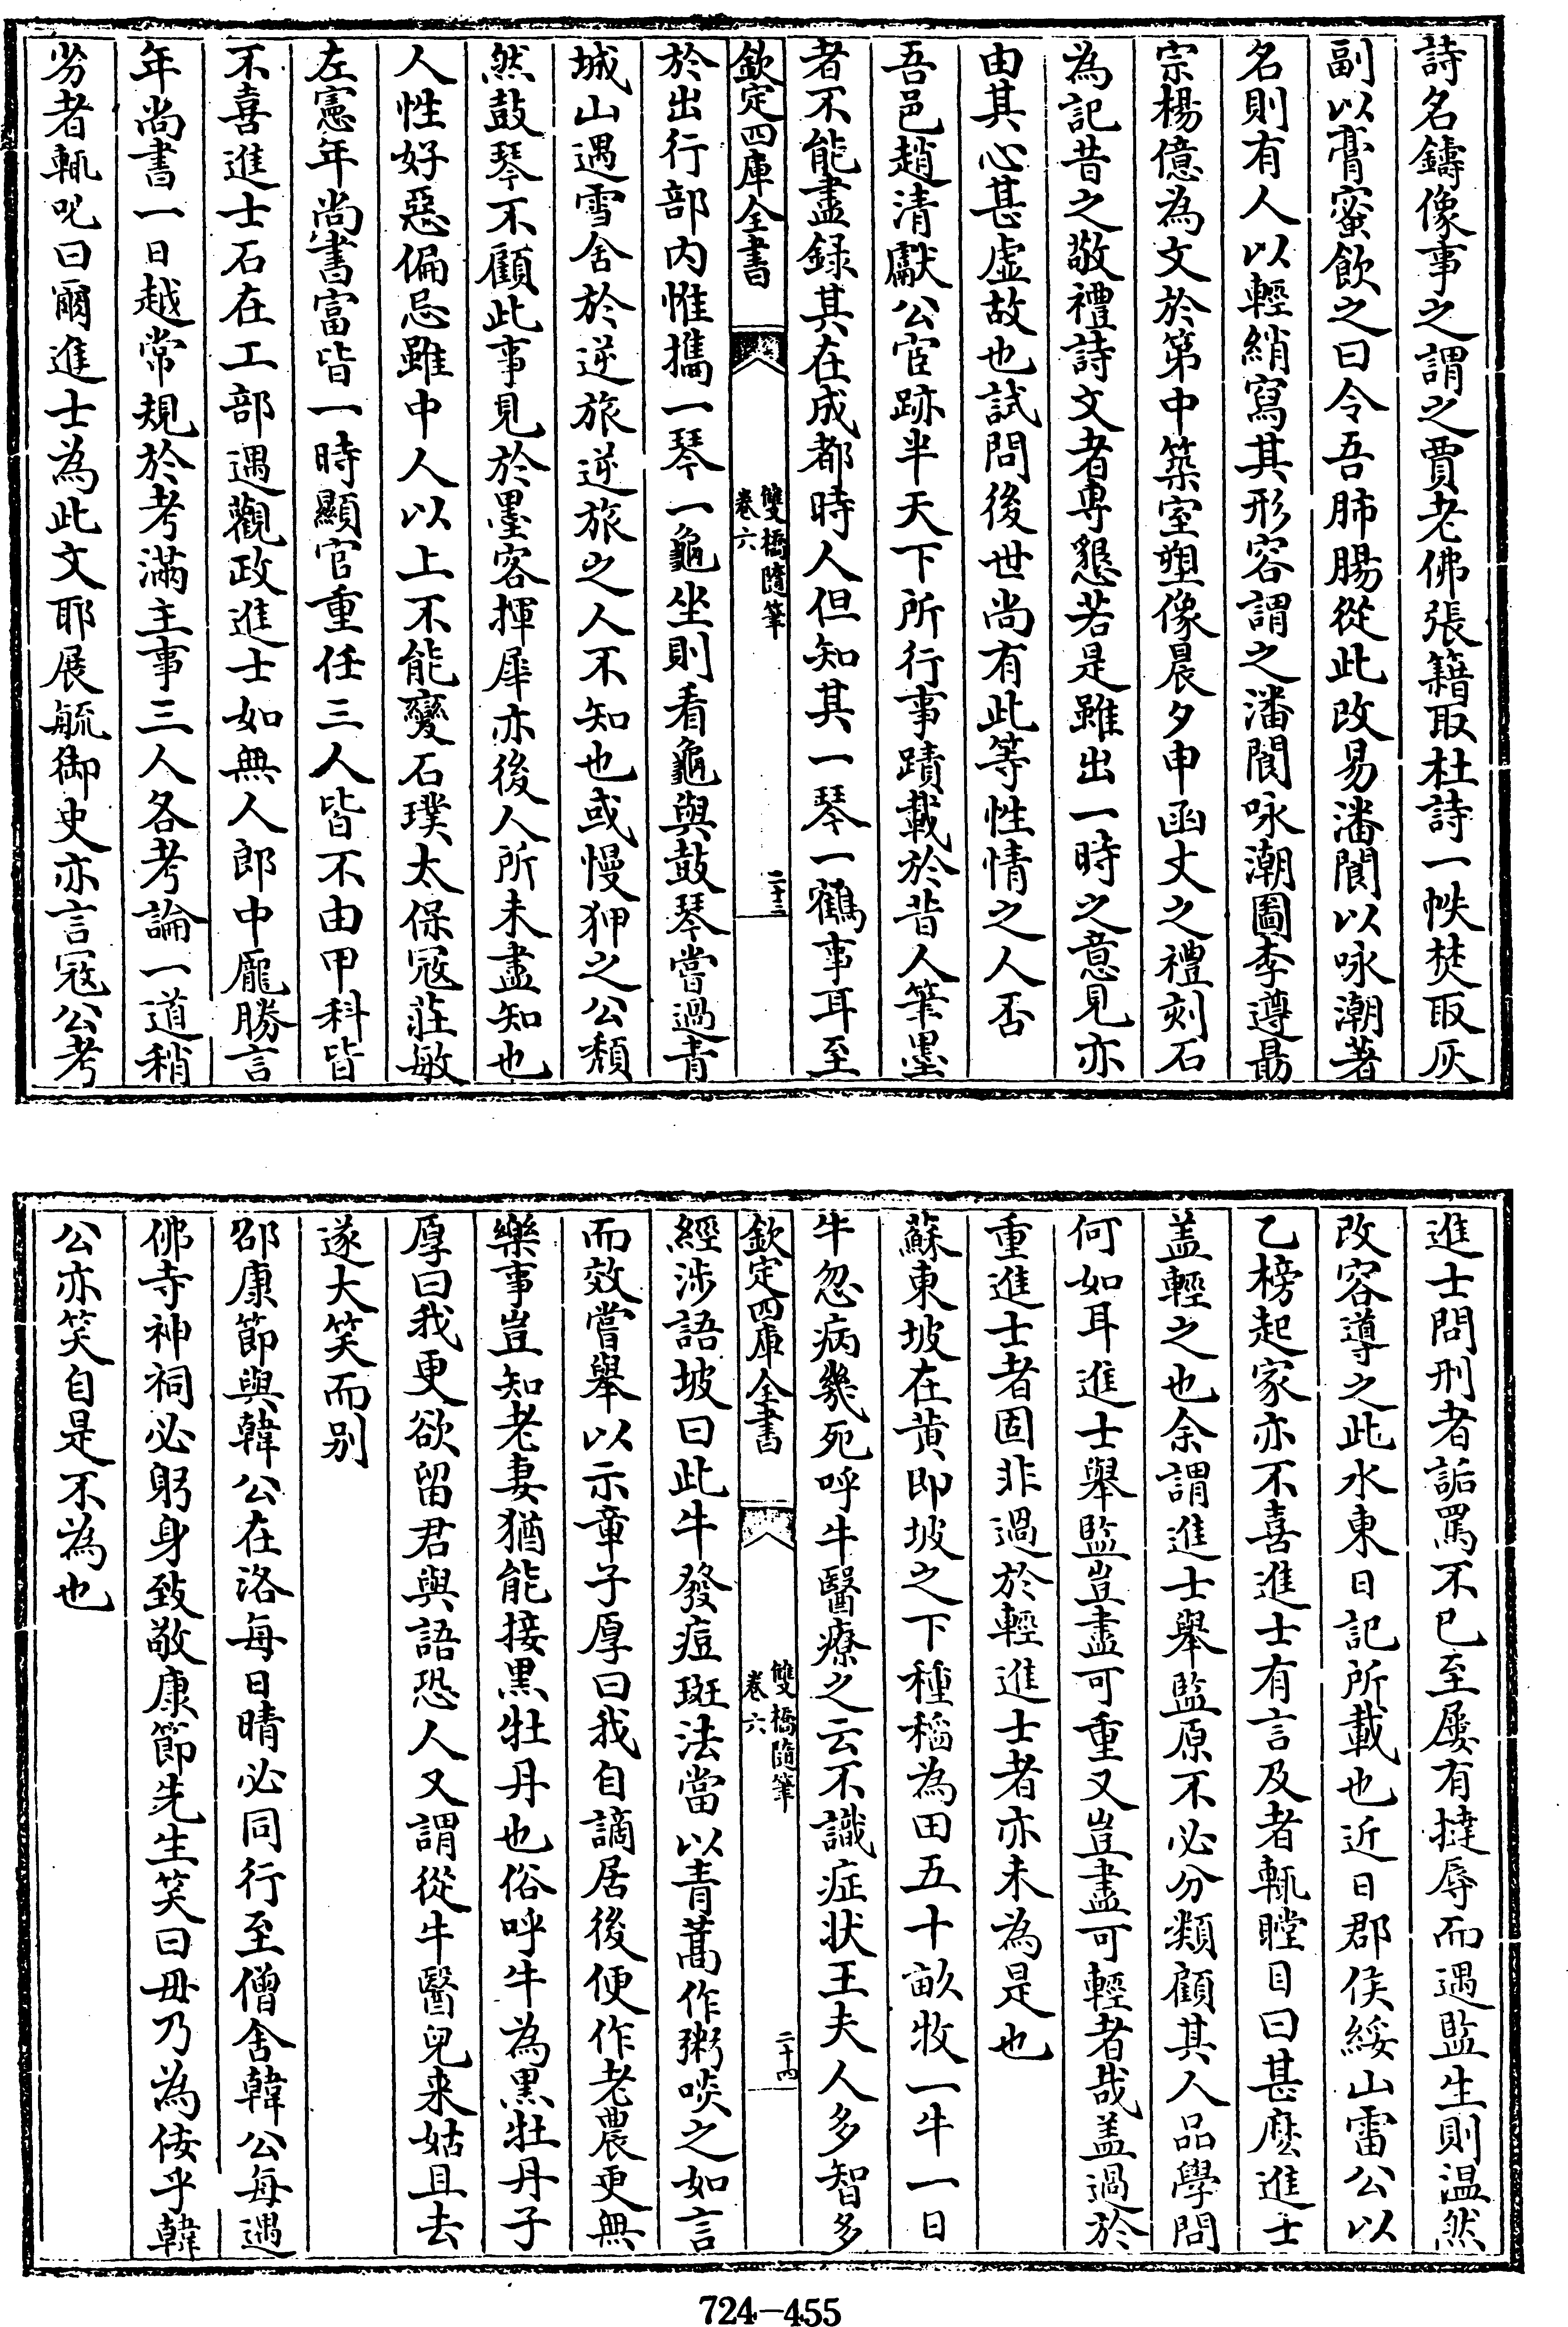 詩名鑄像事之謂之賈老佛張籍取杜詩一帙焚取灰
副以膏蜜飲之曰令吾肺腸從此改易潘閬以咏潮著
名則有人以輕綃寫其形容謂之潘閬咏潮圖李遵勗
宗楊億為文於第中築室塑像晨夕申函丈之禮刻石
為記昔之敬禮詩文者専懇若是雖出一時之意見亦
由其心甚虛故也試問後世尚有此等性情之人否
吾邑趙清獻公宦跡半天下所行事蹟載於昔人筆墨
者不能盡録其在成都時人但知其一琴一鶴事耳至
欽定四庫全書
雙橋隨筆
卷六
二十三
於出行部内惟攜一琴一龜坐則看龜與鼓琴嘗過青
城山遇雪舍於逆旅逆旅之人不知也或慢狎之公頽
然鼓琴不顧此事見於墨客揮犀亦後人所未盡知也
人性好惡偏忌雖中人以上不能變石璞太保冦莊敏
左憲年尚書富皆一時顯官重任三人皆不由甲科皆
不喜進士石在工部遇觀政進士如無人郎中龎勝言
年尚書一日越常規於考滿主事三人各考論一道稍
劣者輒叱曰爾進士為此文耶展毓御史亦言冦公考
進士問刑者詬罵不已至屢有撻辱而遇監生則温然
改容導之此水東日記所載也近日郡侯綏山雷公以
乙榜起家亦不喜進士有言及者輒瞠目曰甚麽進士
盖輕之也余謂進士舉監原不必分類顧其人品學問
何如耳進士舉監豈盡可重又豈盡可輕者哉盖過於
重進士者固非過於輕進士者亦未為是也
蘇東坡在黄即坡之下種稻為田五十畝牧一牛一日
牛忽病幾死呼牛醫療之云不識症状王夫人多智多
欽定四庫全書
雙橋隨筆
卷六
二十四
經涉語坡曰此牛發痘斑法當以青蒿作粥啖之如言
而效嘗舉以示章子厚曰我自謫居後便作老農更無
樂事豈知老妻猶能接黒牡丹也俗呼牛為黒牡丹子
厚曰我更欲留君與語恐人又謂從牛醫兒来姑且去
遂大笑而别
邵康節與韓公在洛每日晴必同行至僧舍韓公每遇
佛寺神祠必躬身致敬康節先生笑曰毋乃為佞乎韓
公亦笑自是不為也
724-455